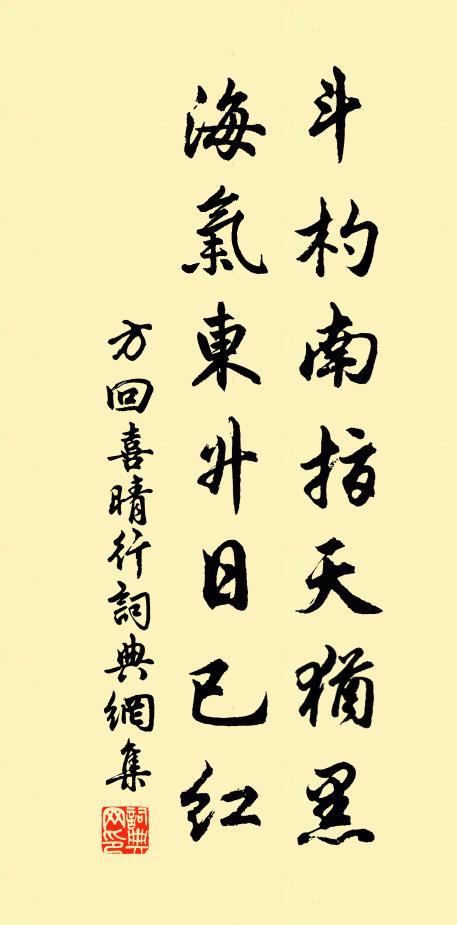 斗杓南指天猶黑
海氣東升日已紅
方回喜晴行詞典網集
詞典網印